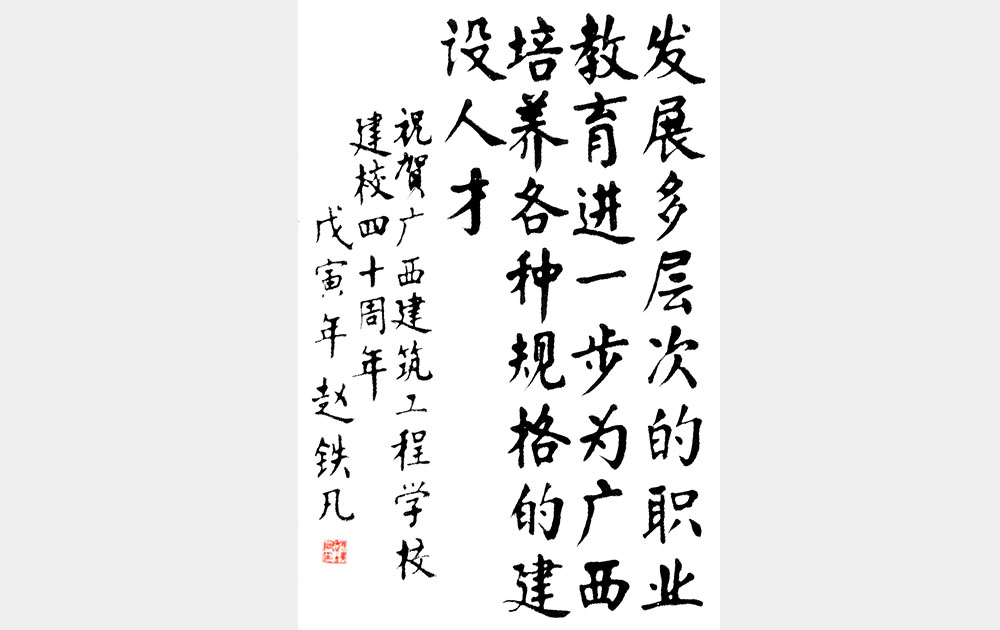 发展多层次的职业
教育进一步为广西
培养各种规格的建
设人才
祝贺广西建筑工程学校
建校四十周年
戊寅年 赵铁凡